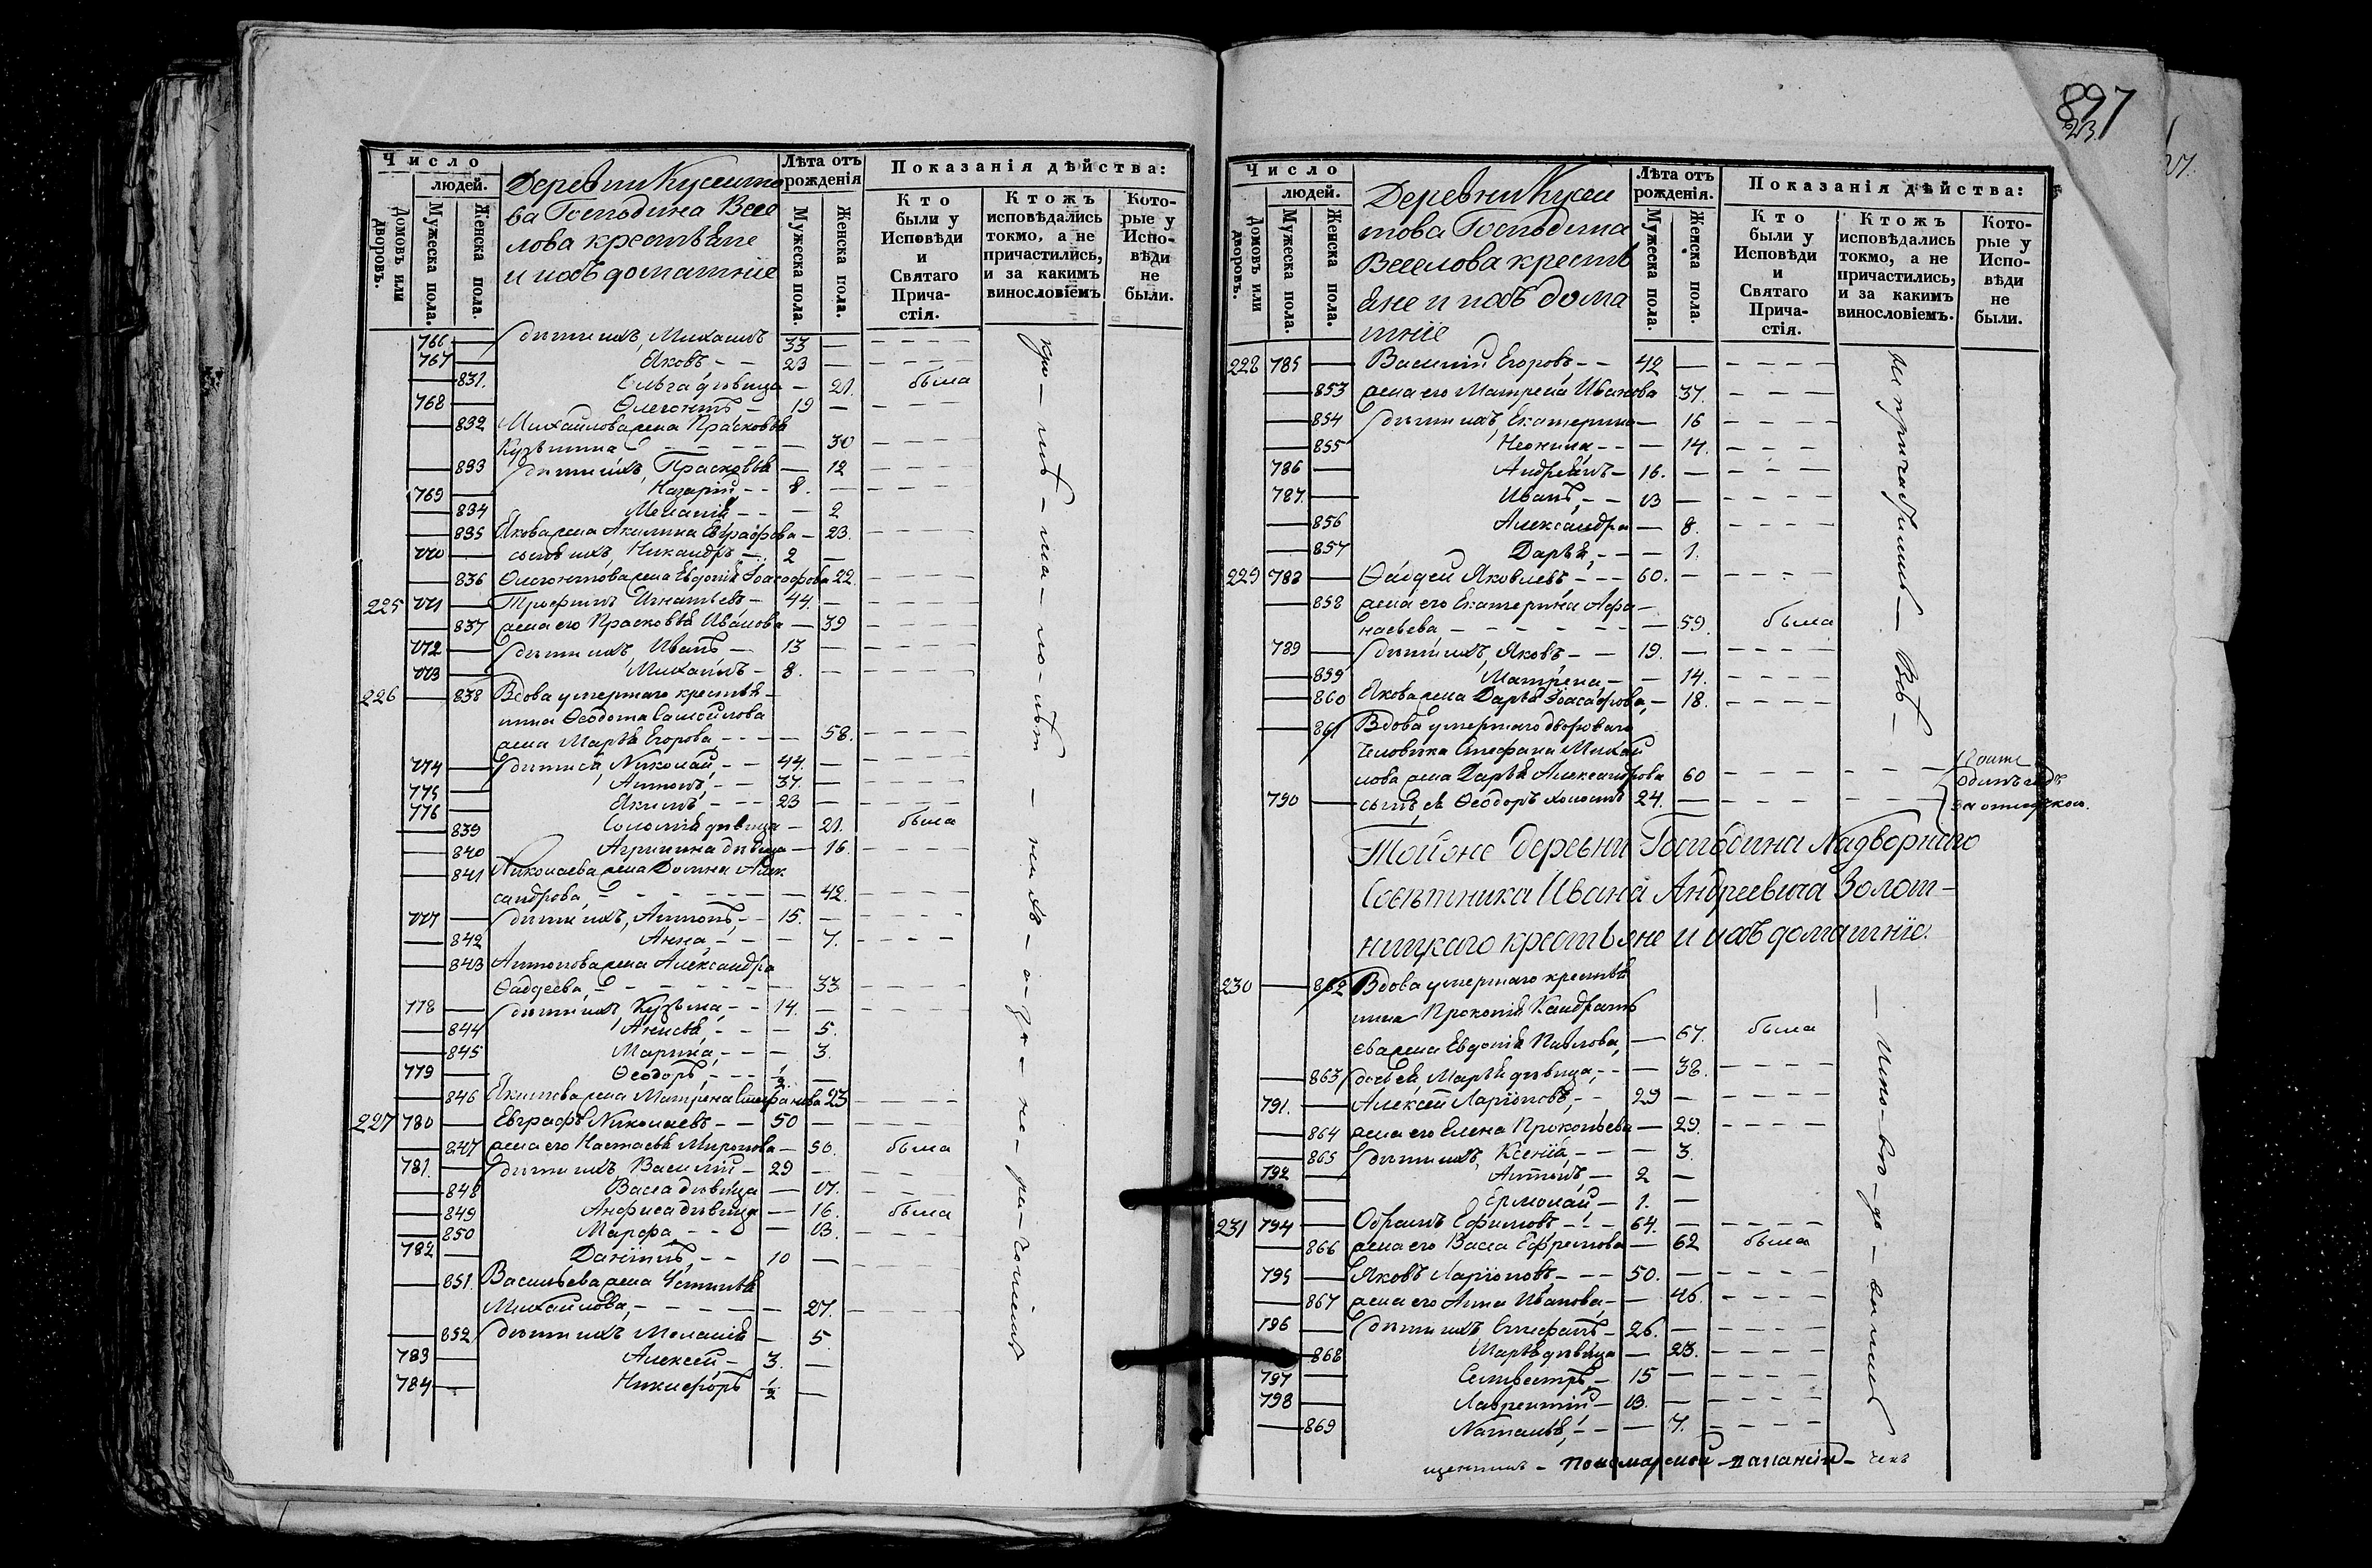 Число
людей.
Домовъ или дворовъ.
Мужеска пола.
Женска пола.
Деревни Кусито
ва Господина Весе
лова крестьяне
и ихъ домашніе
Лѣта отъ рожденія
Мужеска пола.
Женска пола.
Показанія дѣйства:
Кто были у Исповѣди и Святаго Причастія.
Ктожъ исповѣдались токмо, а не причастились, и за какимъ винословіемъ
Которые у Исповѣди не были.
766 — дѣти ихъ, Михаилъ 33 —
767 — Яковъ 23 —
— 831. Ольга дѣвица — 21. была
768 — Ѳлегонтъ 19 —
— 832 Михайлова жена Прасковья
Кузьмина — 30
— 833 дѣти ихъ, Прасковья — 12
769 — Назарій 8. —
— 834 Меланія — 2
— 835 Якова жена Акилина Евграфова — 23.
770 — сынъ ихъ, Никандръ 2 —
— 836 Ѳлегонтова жена Евдокія Іоасафова 22.
225 771 — Трофимъ Игнатьевъ 44. —
— 837 жена его Прасковья Иванова — 39
772 — дѣти ихъ Иванъ 13 —
773 — Михаилъ 8. —
226 — 838 Вдова умершаго крестья-
нина Ѳеодота Самойлова
жена Марья Егорова — 58.
774 — дѣти ея, Николай 44. —
775 — Антонъ 37. —
776 — Якимъ 23 —
— 839 Соломія дѣвица — 21. была
— 840 Агрипина дѣвица — 16.
— 841 Николаева жена Домна Алек
сандрова — 42.
777 — дѣти ихъ, Антонъ 15. —
— 842 Анна — 7.
— 843 Антонова жена Александра
Ѳаддеева — 33
778 — дѣти ихъ, Кузьма 14. —
— 844 Анисья — 5.
— 845 Марина — 3.
779 — Ѳеодоръ ½ —
— 846 Якимова жена Матрена Стефанова 23
227 780 — Евграфъ Николаевъ 50 —
— 847 жена его Настасья Миронова — 50. была
781. — дѣти ихъ Василій 29 —
— 848 Васса дѣвица — 17.
— 849 Анфиса дѣвица — 16. была
— 850 Марфа — 13.
782 — Даніилъ 10 —
— 851. Васильева жена Устинья
Михайлова — 27.
— 852 дѣти ихъ Меланія — 5.
783 — Алексѣй 3. —
784 — Никифоръ ½ —
897
23.
Число
людей.
Домовъ или дворовъ.
Мужеска пола.
Женска пола.
Деревни Куси
това Господина
Веселова кресть
яне и ихъ дома
шніе
Лѣта отъ рожденія.
Мужеска пола.
Женска пола.
Показанія дѣйства:
Кто были у Исповѣди и Святаго Причастія.
Ктожъ исповѣдались токмо, а не причастились, и за какимъ винословіемъ.
Которые у Исповѣди не были.
228 785 — Василій Егоровъ 42 —
— 853 жена его Матрена Иванова 37.
— 854 дѣти ихъ, Екатерина — 16
— 855 Неонила — 14.
786 — Андреянъ 16. —
787. — Иванъ 13 —
— 856 Александра — 8.
— 857 Дарья — 1.
229 788 — Ѳаддей Яковлевъ 60. —
— 858 жена его Екатерина Афа-
насьева — 59. была
789 — дѣти ихъ, Яковъ 19. —
— 859 Матрена — 14.
— 860 Якова жена Дарья Іоасафова — 18.
— 861 Вдова умершаго двороваго
человѣка Стефана Михай
лова жена Дарья Александрова 60
790 — сынъ ея Ѳеодоръ холостъ 24. —
одинъ годъ
за отлучкою.
Той же деревни Господина Надворнаго
Совѣтника Ивана Андреевича Золот-
ницкаго крестьяне и ихъ домашніе.
230 — 862 Вдова умершаго крестья
нина Прокопія Кандрать
ева жена Евдокія Павлова — 67. была
— 863 дочь ея, Марья дѣвица — 38.
791. — Алексѣй Ларіоновъ 29 —
— 864 жена его Елена Прокопьева — 29.
— 865 дѣти ихъ, Ксенія — 3.
792 — Антонъ 2 —
— Ермолай 1. —
231 794 — Абрамъ Ефимовъ 64. —
— 866 жена его Васса Ефремова — 62 была
795 — Яковъ Ларіоновъ 50. —
— 867 жена его Анна Иванова — 46.
796 — дѣти ихъ Стефанъ 26. —
— 868 Марья дѣвица — 23.
797 — Селивестръ 15 —
798 — Лаврентій 13. —
— 869 Наталья — 7.